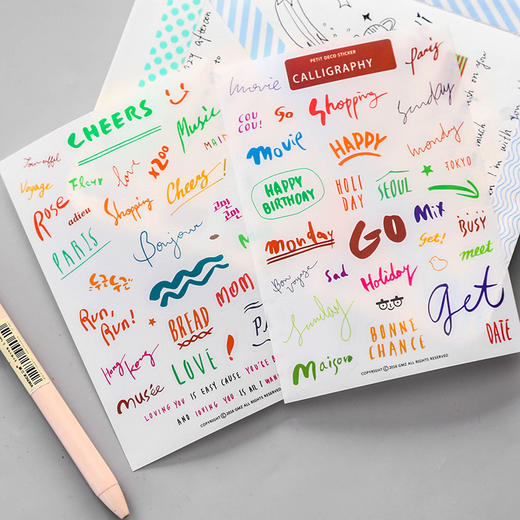 CHEERS
Musée
Voyage
Fleur
love
x200
Rose
adieu
Shopping
Cheers!
PARIS
Bonjour
두근두근
Run,
Run!
BREAD
MOM
Hong Kong
LOVE
!
musée
LOVING YOU IS EASY CAUSE YOU'RE
AND LOVING YOU IS ALL I
COPYRIGHT © 2016 GMZ ALL RIGHTS RESERVED
PETIT DECO STICKER
CALLIGRAPHY
movie
Paris
COU
COU!
Go
Shopping
Sunday
Movie
HAPPY
Monday
HAPPY
BIRTHDAY
HOLI
DAY
SEOUL
TOKYO
monday
GO
Mix
Get!
BUSY
meet
Bon
Voyage
Sad
Holiday
Sunday
get
Maison
BONNE
CHANCE
DATE
COPYRIGHT © 2016 GMZ ALL RIGHTS RESERVED